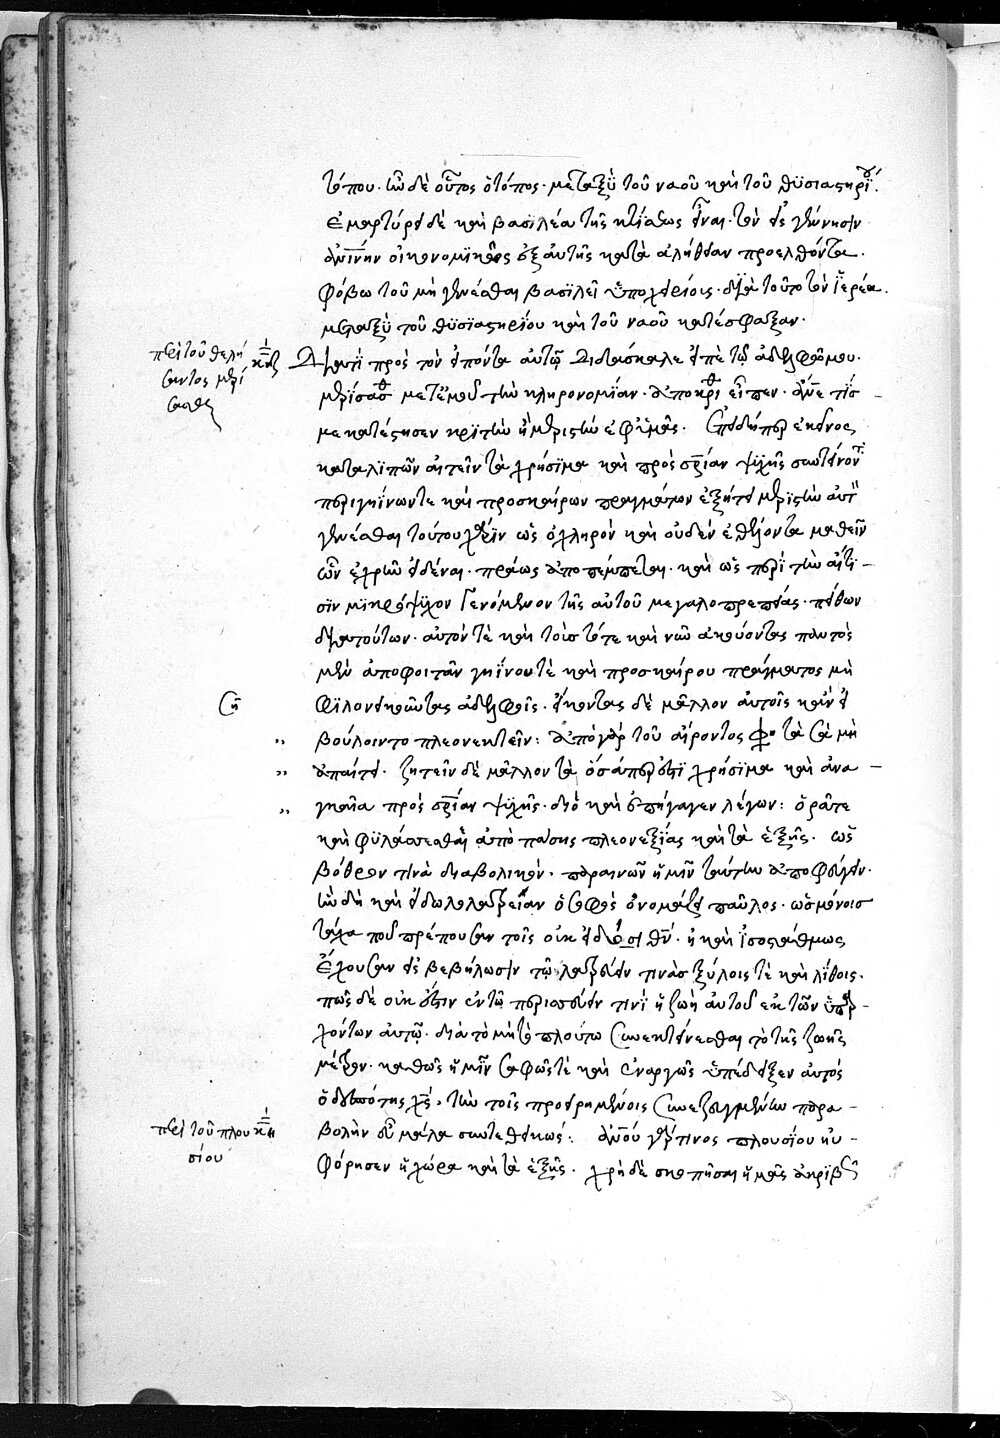 τόπου· ἦν δὲ οὗτος ὁ τόπος· μεταξὺ τοῦ ναοῦ καὶ τοῦ θυσιαστηρί(ου).
ἐμαρτύρει δὲ καὶ βασιλέα τῆς κτίσεως εἶναι· τὸν εἰς γέννησιν
ἀνίνην οἰκονομικῶς ἐξ αὐτῆς κατὰ ἀλήθειαν προελθόντα.
φόβω τοῦ μὴ γενέσθαι βασιλεῖ ὑποχείριοις· διὰ τοῦτο τὸν ἱερέα.
μεταξὺ τοῦ θυσιαστηρίου καὶ τοῦ ναοῦ κατέσφαξαν.
περὶ τοῦ θελή
σαντος μερί
σασθαι
πρὸς τὸν εἰπόντα αὐτῷ διδάσκαλε εἰπὲ τῷ ἀδελφῶ μου·
μερίσασθ μετ' ἐμοῦ τὴν κληρονομίαν· ἀποκρι εἶπεν· ἄνε τίς
με κατέστησεν κριτὴν ἢ μεριστὴν ἐφ' ὑμᾶς. Ἐπειδήπερ ἐκεῖνος
καταλιπὼν αἰτεῖν τὰ χρήσιμα καὶ πρὸς σρίαν ψυχῆς συντείνοντ
περὶ γηΐνων τε καὶ προσκαίρων πραγμάτων ἐξήτει μεριστὴν αὐτ
γενέσθαι τούτου χάριν ὡς ὀχληρὸν καὶ οὐδὲν ἐθέλοντα μαθεῖν
ὧν ἐχρῆν εἰδέναι· πράως ἀποπέμπεται· καὶ ὡς περὶ τὴν αἴτη
σιν μικρόψυχον γενόμενον τῆς αὐτοῦ μεγαλοπρεπείας· πείθων
διὰ τούτων· αὐτόν τε καὶ τοὺς τότε καὶ νῦν ἀκούοντας παντὸς
μὲν ἀποφοιτᾶν γηΐνου τὲ καὶ προσκαίρου πράγματος μὴ
φιλονεικοῦντας ἀδελφοῖς· εἴκοντας δὲ μᾶλλον αὐτοῖς κἂν εἰ
βούλοιντο πλεονεκτεῖν: ἀπὸ γὰρ τοῦ αἴροντος φη τὰ σὰ μὴ
ἀπαίτει· ζητεῖν δὲ μᾶλλον τὰ ὅσαπερ ἐστὶ χρήσιμα καὶ ἀνα
γκαῖα πρὸς σρίαν ψυχῆς· διὸ καὶ ἐπήγαγεν λέγων: ὁρᾶτε
καὶ φυλάσσεσθαι ἀπὸ πάσης πλεονεξίας καὶ τὰ ἑξῆς. ὡς
βόθρον τινὰ διαβολικόν· παραινῶν ἡμῖν ταύτην ἀποφυγεῖν·
ἣν δὴ καὶ εἰδωλολατρείαν ὁ σοφὸς ὀνομάζει παῦλος· ὡς μόνοις
τάχα που πρέπουσαν τοῖς οὐκ εἰδόσι θν· ἢ καὶ ἰσοστάθμως
ἔχουσαν εἰς βεβήλωσιν τῷ λατρεύειν τινὰς ξύλοις τὲ καὶ λίθοις·
πῶς δὲ οὐκ ἔστιν ἐν τῷ περισσεύειν τινὶ ἡ ζωὴ αὐτοῦ ἐκ τῶν ὑπαρ
χόντων αὐτῷ· διὰ τὸ μήτε πλούτω συνεκτείνεσθαι τὸ τῆς ζωῆς
μέτρον· καθὼς ἡμῖν σαφῶς τὲ καὶ ἐναργῶς ὑπέδειξεν αὐτὸς
ὁ δεσπότης χς· τὴν τοῖς προειρημένοις συνεζευγμένην παρα
περὶ τοῦ πλου
σίου
βολὴν εὖ μάλα συντεθεικώς: ἀνου γάρ τινος πλουσίου ηὐ
φόρησεν ἡ χώρα καὶ τὰ ἑξῆς. χρὴ δὲ σκοπῆσαι ἡμᾶς ἀκριβῶς